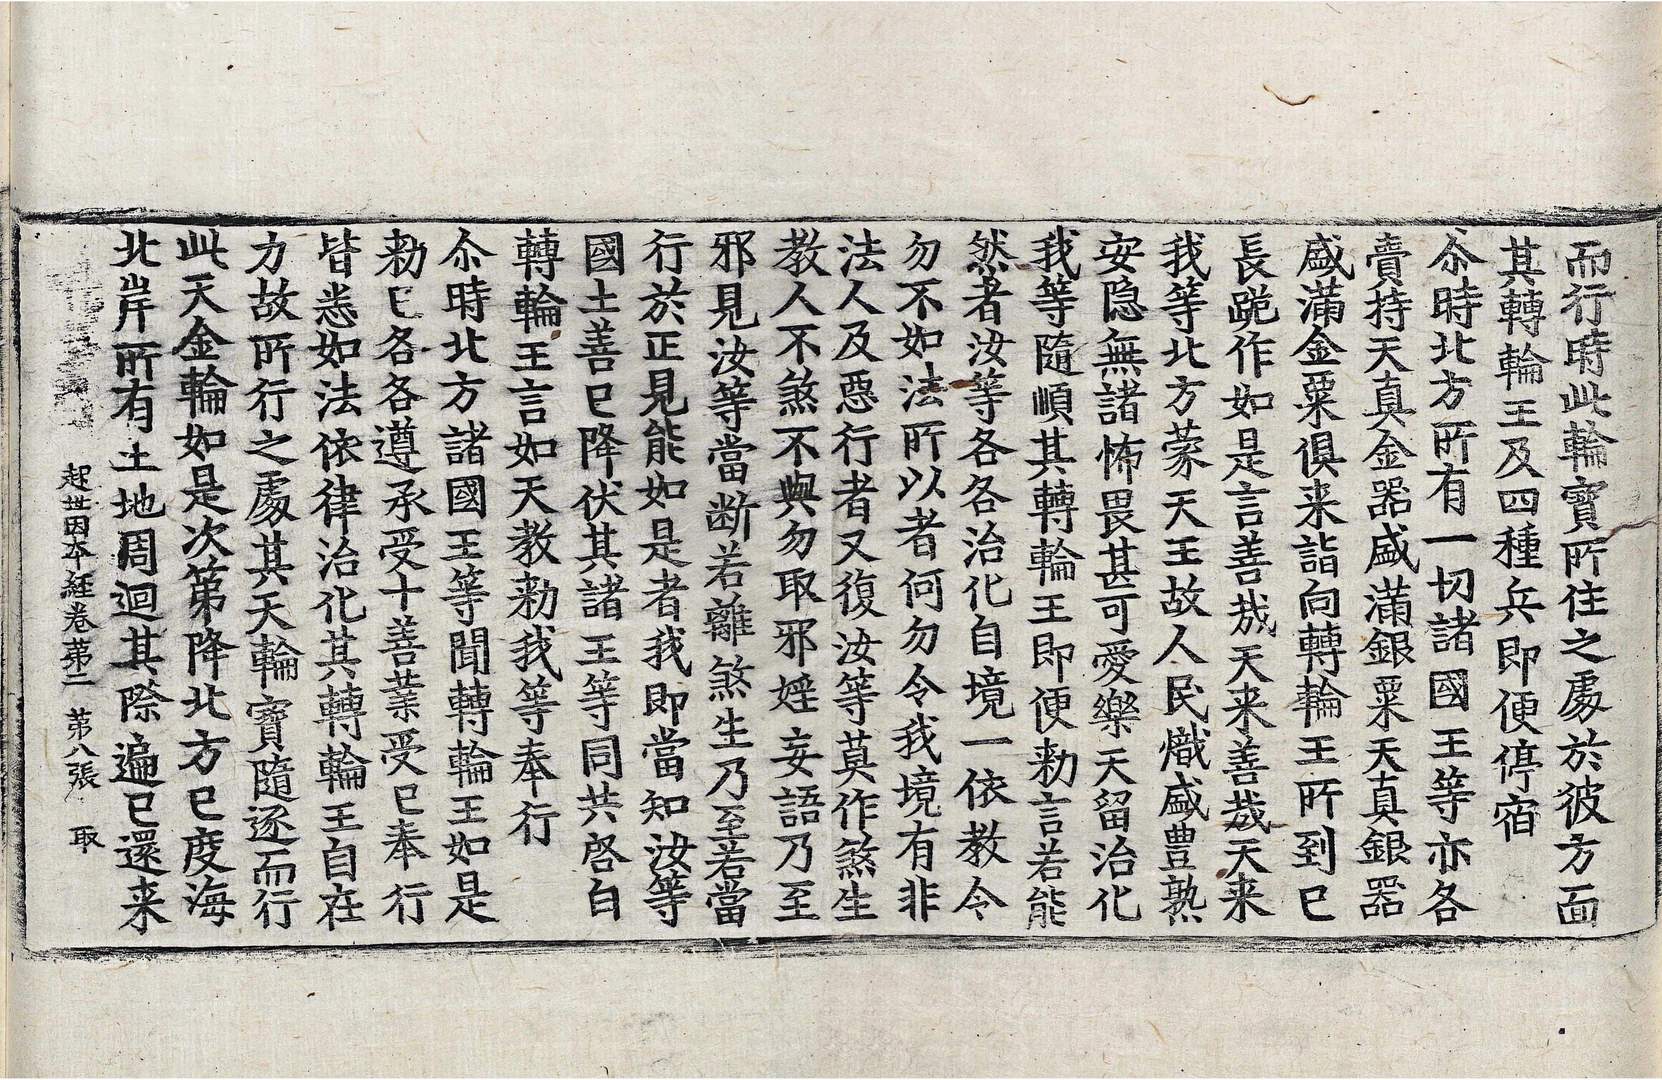 而行時此輪寶所住之處於彼方面
其轉輪王及四種兵即便停宿
尒時北方所有一切諸國王等亦各
賷持天真金器盛滿銀粟天真銀器
盛滿金粟俱来詣向轉輪王所到已
長跪作如是言善㦲天来善㦲天来
我等北方蒙天王故人民熾盛豊熟
安隐無諸怖畏甚可愛樂天留治化
我等隨順其轉輪王即便勑言若能
然者汝等各各治化自境一依教令
勿不如法所以者何勿令我境有非
法人及惡行者又復汝等莫作煞生
教人不煞不與勿取邪婬妄語乃至
邪見汝等當断若離煞生乃至若當
行於正見能如是者我即當知汝等
國土善已降伏其諸王等同共啓白
轉輪王言如天教勑我等奉行
尒時北方諸國王等聞轉輪王如是
勑已各各遵承受十善業受已奉行
皆悉如法依律治化其轉輪王自在
力故所行之處其天輪寶隨逐而行
此天金輪如是次第降北方已度海
北岸所有土地周迴其際遍已還来
起世因夲經卷苐二　苐八張　取